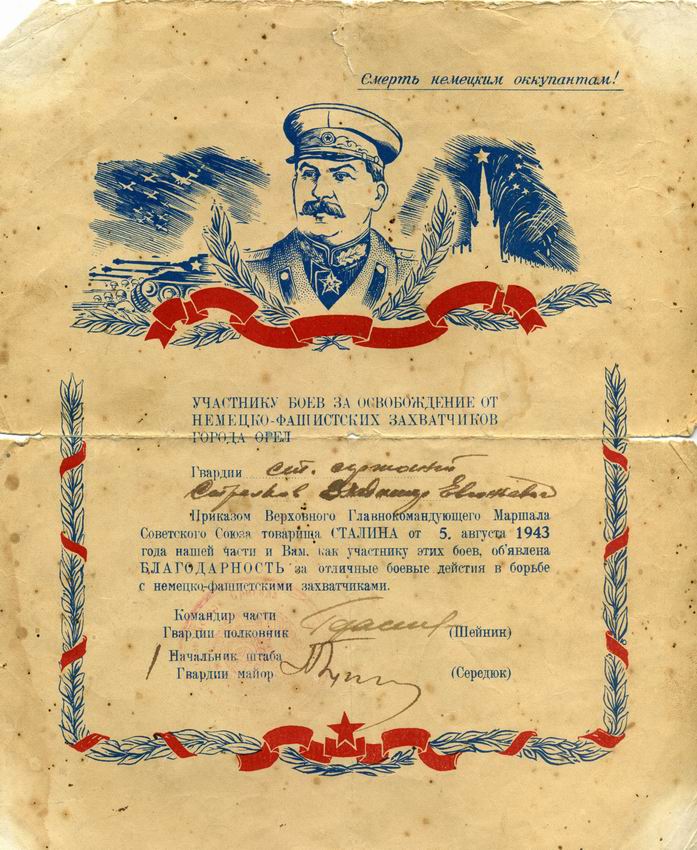 Смерть немецким оккупантам!
УЧАСТНИКУ БОЕВ ЗА ОСВОБОЖДЕНИЕ ОТ
НЕМЕЦКО-ФАШИСТСКИХ ЗАХВАТЧИКОВ
ГОРОДА ОРЕЛ
Гвардии ст. сержант
Стрелков Владимир
Приказом Верховного Главнокомандующего Маршала
Советского Союза товарища СТАЛИНА от 5. августа 1943
года нашей части и Вам, как участнику этих боев, об'явлена
БЛАГОДАРНОСТЬ за отличные боевые дейстия в борьбе
с немецко-фашистскими захватчиками.
Командир части
Гвардии полковник (Шейнин)
Начальник штаба
Гвардии майор (Середюк)